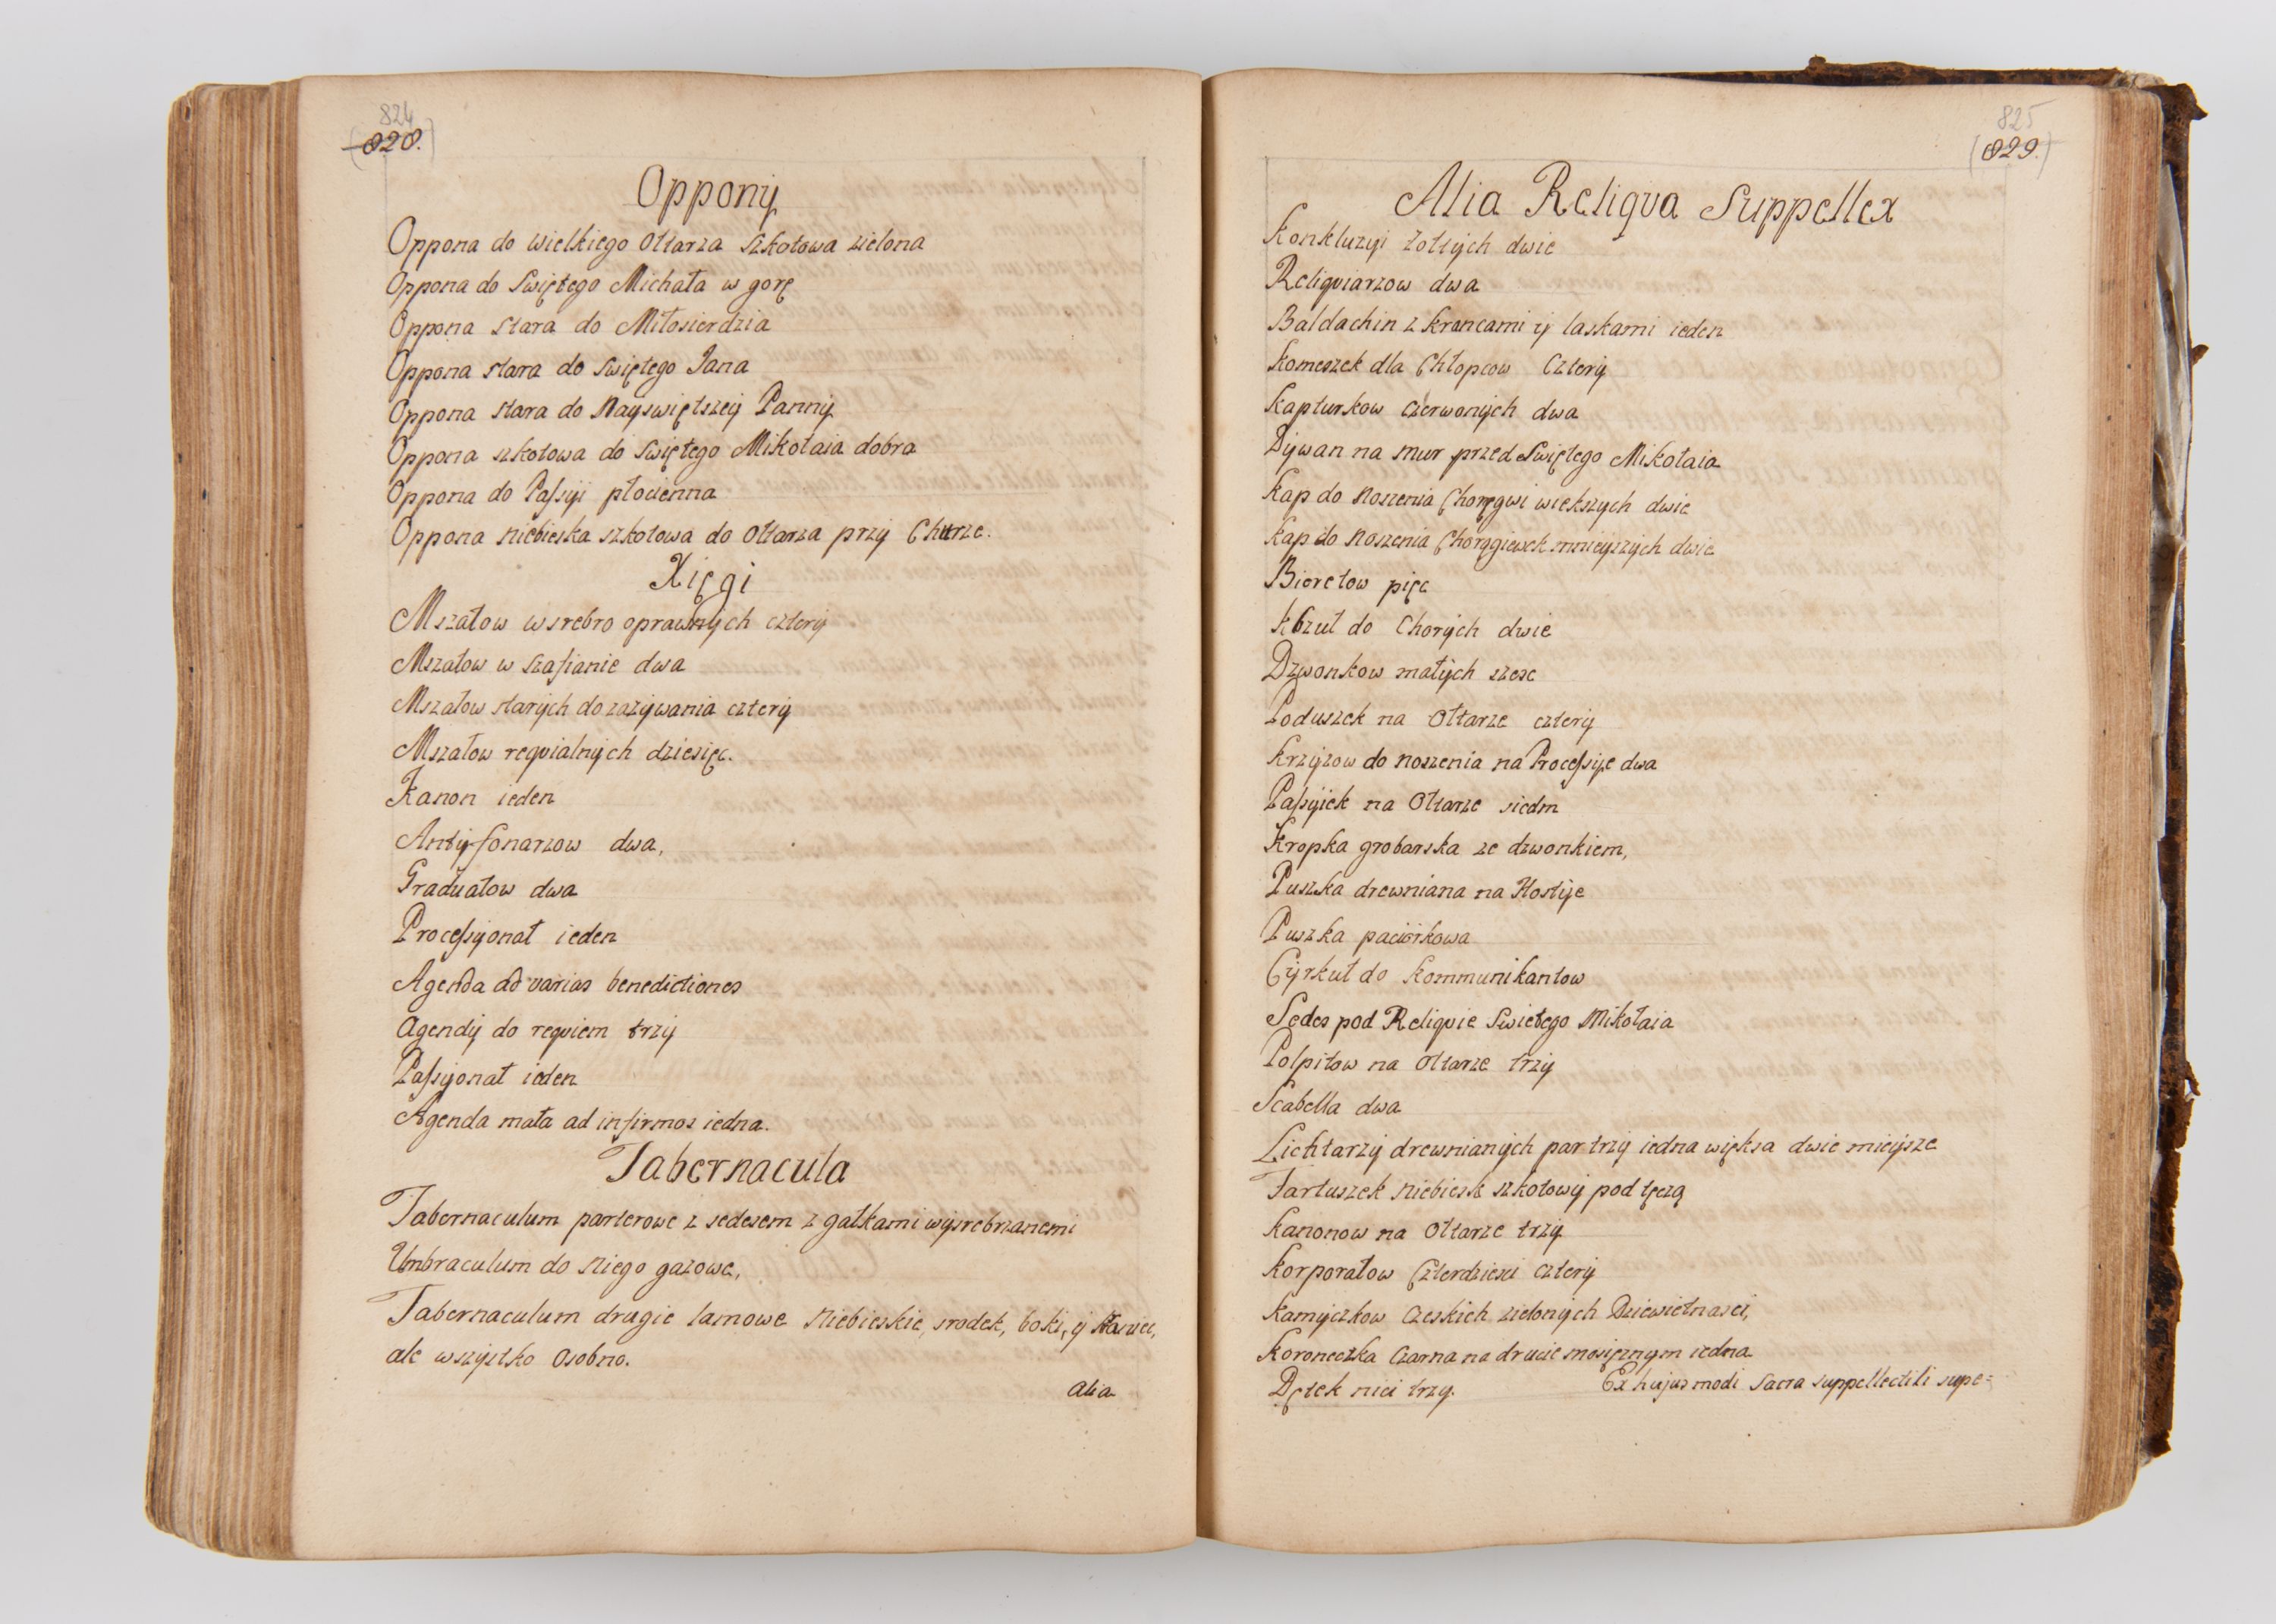 824
828.
Oppony
Oppona do wielkiego Ołtarza szkotowa zielona
Oppona do Swiętego Michała w gorę
Oppona stara do Miłosierdzia
Oppona stara do Swiętego Jana
Oppona stara do Nayswiętszey Panny
Oppona szkotowa do Swiętego Mikołaia dobra
Oppona do Passyi płocienna
Oppona niebieska szkotowa do Ołtarza przy Churze.
Xięgi
Mszałow w srebro oprawnych cztery
Mszałow w szafianie dwa
Mszałow starych do zazywania cztery
Mszałow requialnych dziesięc.
Kanon ieden
Antyfonarzow dwa,
Graduałow dwa
Processyonał ieden
Agenda ad varias benedictiones
Agendy do requiem trzy
Passyonał ieden
Agenda mała ad infirmos iedna.
Tabernacula
Tabernaculum parterowe z sedesem z gałkami wysrebrzanemi
Umbraculum do niego gazowe,
Tabernaculum drugie lamowe Niebieskie, srodek, boki, y
ale wszystko osobno.
alia
825
829.
Alia Reliqva Suppellex
Konkluzyi żołtych dwie
Reliqviarzow dwa
Baldachin z kroncami y laskami ieden
Komeszek dla Chłopcow Cztery
Kapturkow czerwonych dwa
Dywan na mur przed Swiętego Mikołaia
Kap do noszenia Choręgwi wiekszych dwie
Kap do Noszenia Chorągiewek mnieyszych dwie
Bieretow pięc
Kbzul do Chorych dwie
Dzwonkow małych szesc
Poduszek na Ołtarze cztery
Krzyzow do noszenia na Processye dwa
Passyiek na Ołtarze siedm
Kropka grobarska ze dzwonkiem,
Puszka drewniana na Hostye
Puszka paciorkowa
Cyrkuł do Kommunikantow
Sedes pod Reliqvie Swietego Mikołaia
Polpitow na Ołtarze trzy
Scabella dwa
Lichtarzy drewnianych par trzy iedna więksa dwie mieysze
Fartuszek niebiesk szkotowy pod tęczą
Kanonow na Ołtarze trzy
Korporałow Czterdziesci cztery
Kamyczkow Czeskich zielonych Dziewietnasci,
Koroneczka Czarna na drucie mosięznym iedna
Dętek nici trzy. Ex hujusmodi Sacra suppellectili supe=